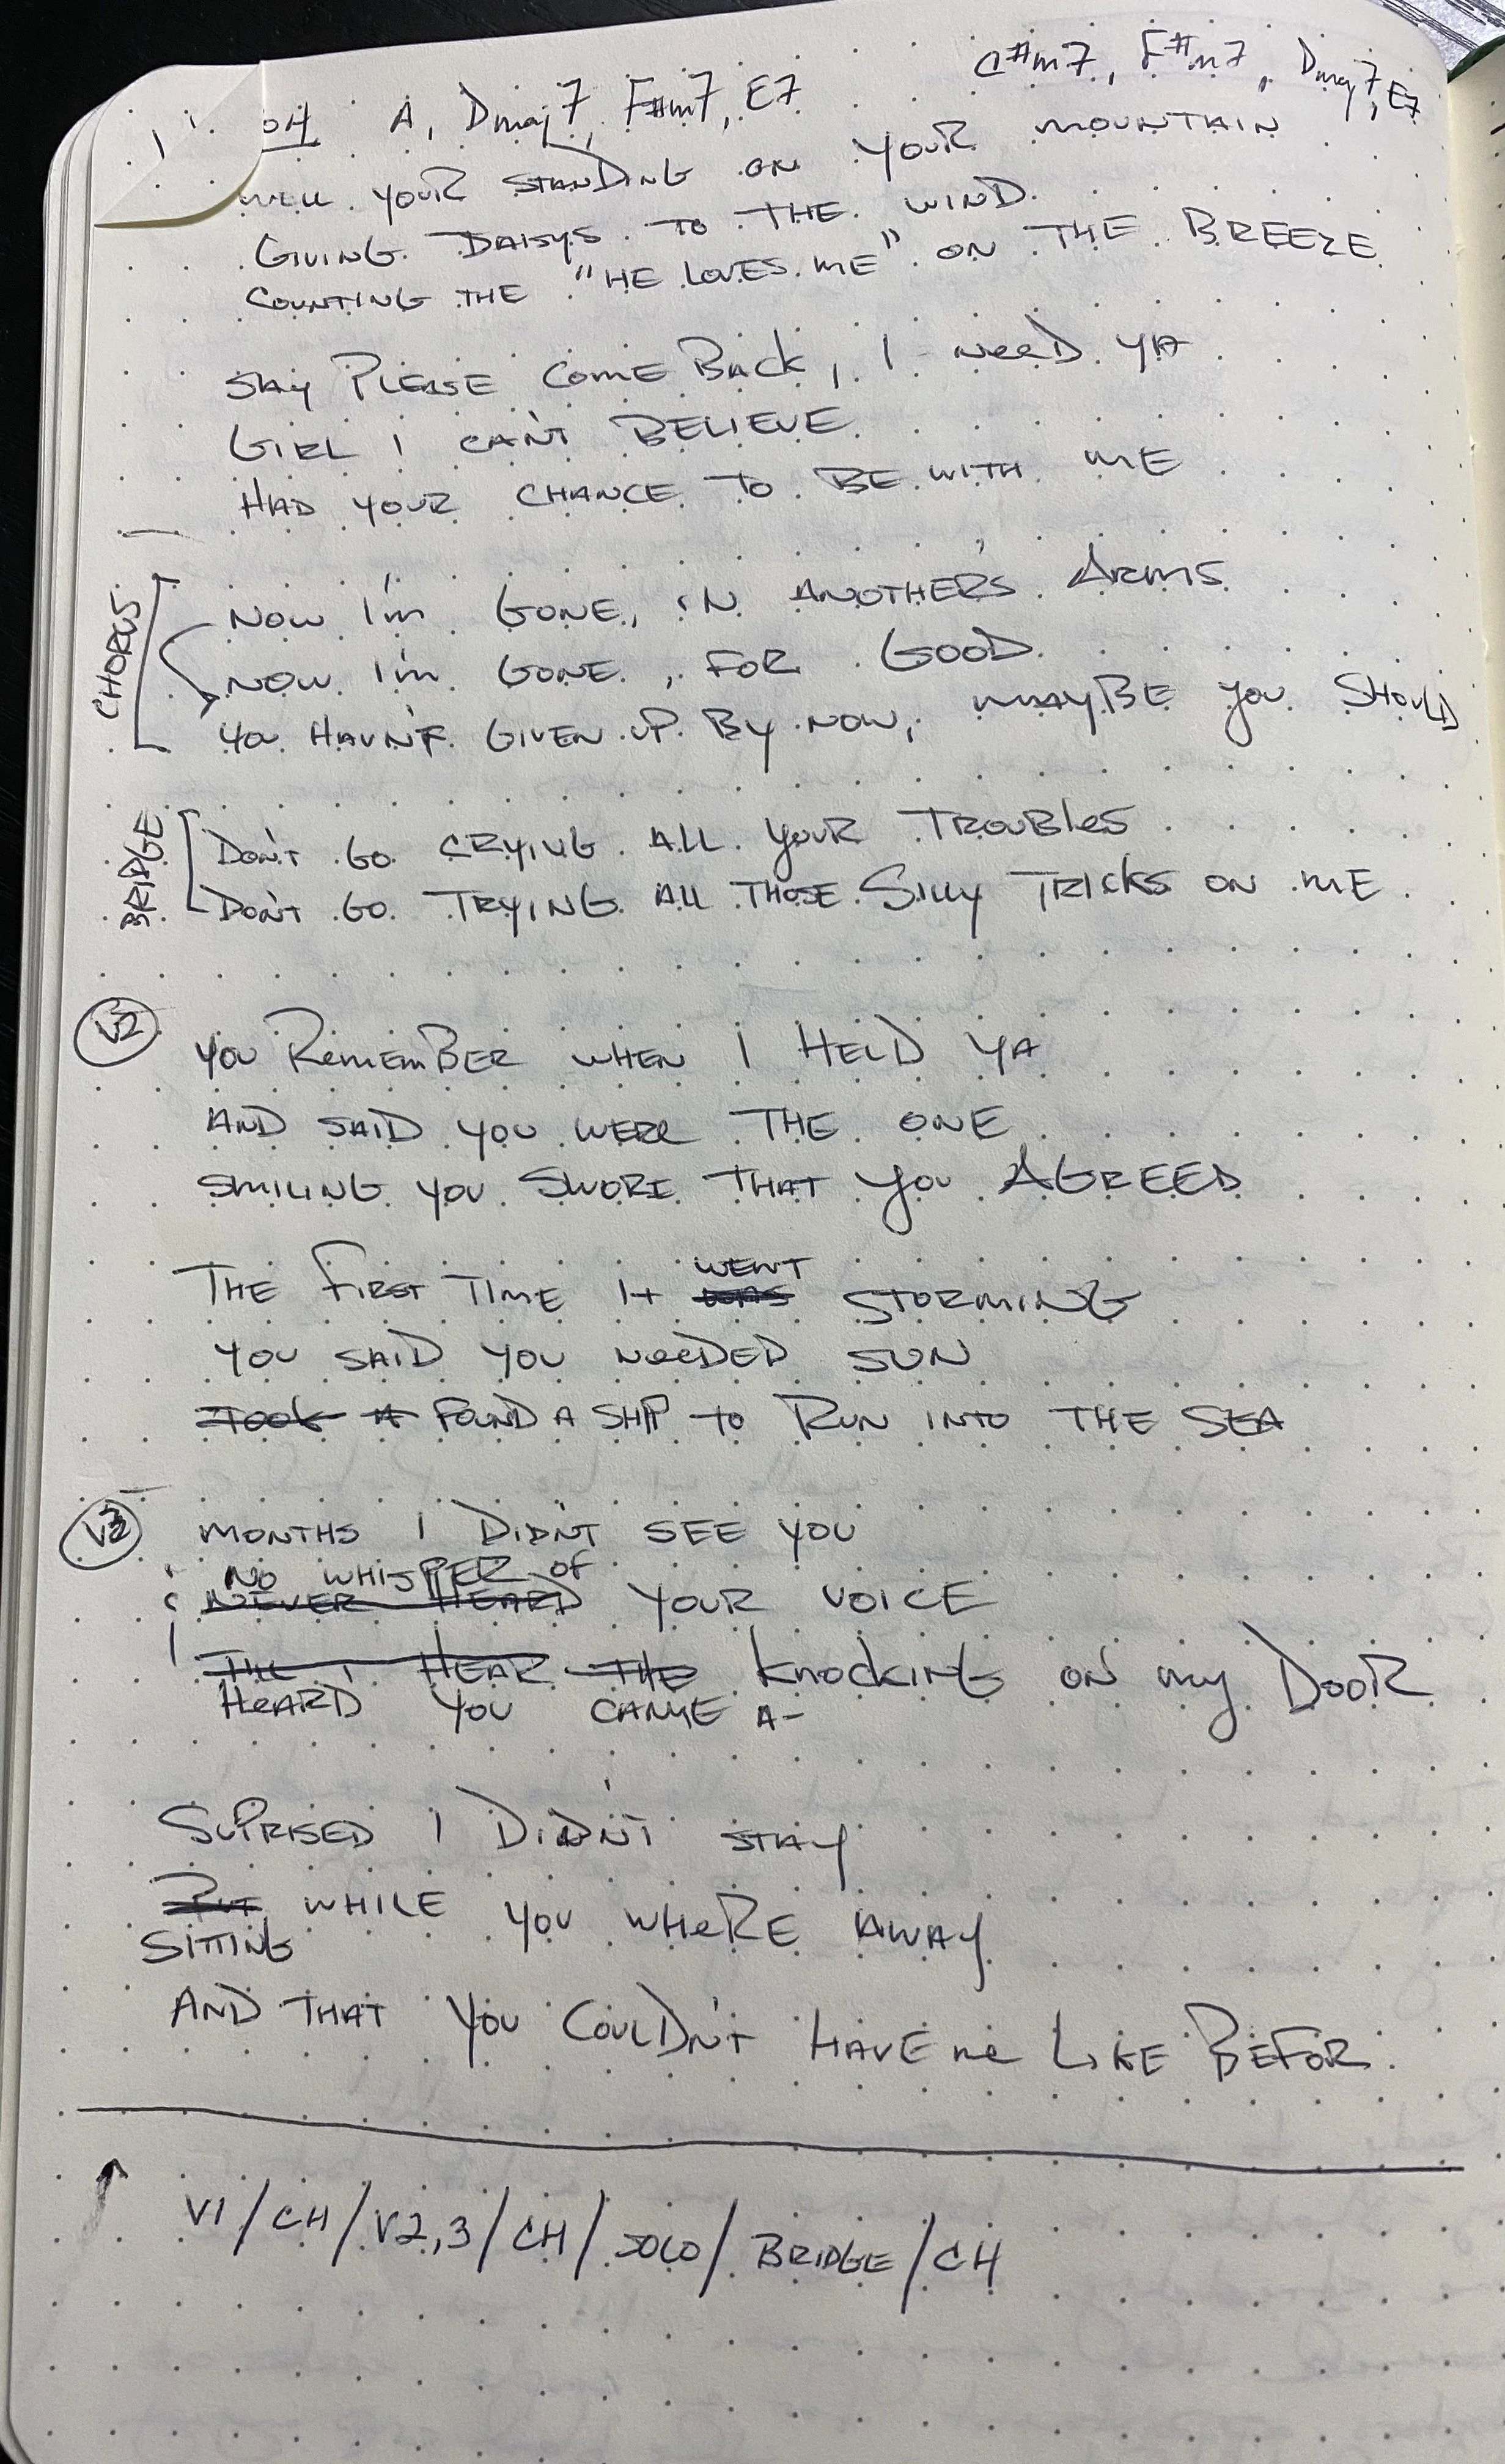 A, Dmaj7, F#m7, E7
C#m7, F#m7, Dmaj7, E7
WELL YOUR STANDING ON YOUR MOUNTAIN
GIVING DAISYS TO THE WIND.
COUNTING THE "HE LOVES ME" ON THE BREEZE
SAY PLEASE COME BACK, I NEED YA
GIRL I CAN'T BELIEVE
HAD YOUR CHANCE TO BE WITH ME
CHORUS
NOW I'M GONE, IN ANOTHER'S ARMS
NOW I'M GONE, FOR GOOD
YOU HAVN'T GIVEN UP BY NOW, MAYBE YOU SHOULD
BRIDGE
DON'T GO CRYING ALL YOUR TROUBLES
DON'T GO TRYING ALL THOSE SILLY TRICKS ON ME
V2
YOU REMEMBER WHEN I HELD YA
AND SAID YOU WERE THE ONE
SMILING YOU SWORE THAT YOU AGREED
WENT
THE FIRST TIME IT WAS STORMING
YOU SAID YOU NEEDED SUN
TOOK A FOUND A SHIP TO RUN INTO THE SEA
V3
MONTHS I DIDN'T SEE YOU
NO WHISPER OF
NEVER HEARD YOUR VOICE
TILL I HEAR THE KNOCKING ON MY DOOR
HEARD YOU CAME A-
SUPRISED I DIDN'T STAY
BUT WHILE YOU WHERE AWAY
SITTING
AND THAT YOU COULDN'T HAVE ME LIKE BEFOR
V1/CH/V2,3/CH/SOLO/BRIDGE/CH